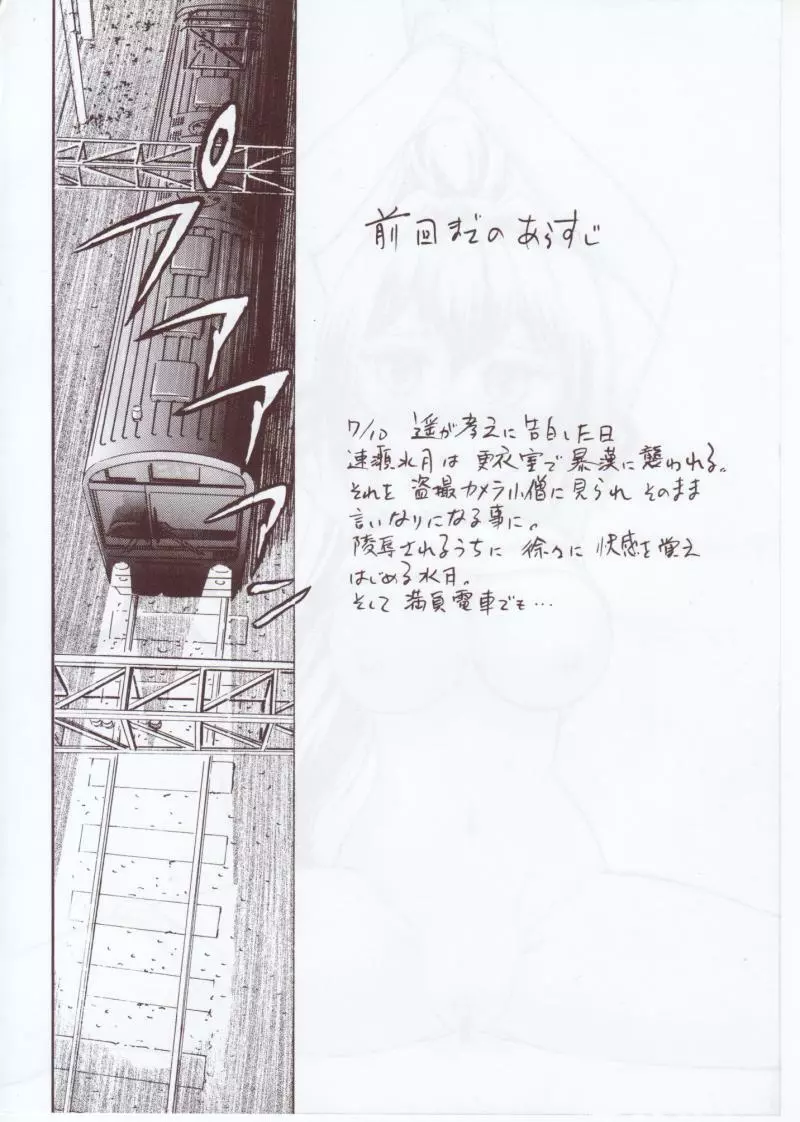 前回までのあらすじ
7/10 遥が孝之に告白した日
速瀬水月は 更衣室で暴漢に襲われる。
それを 盗撮カメラ小僧に見られ そのまま
言いなりになる事に。
陵辱されるうちに 徐々に 快感を覚え
はじめる水月。
そして 満員電車でも…